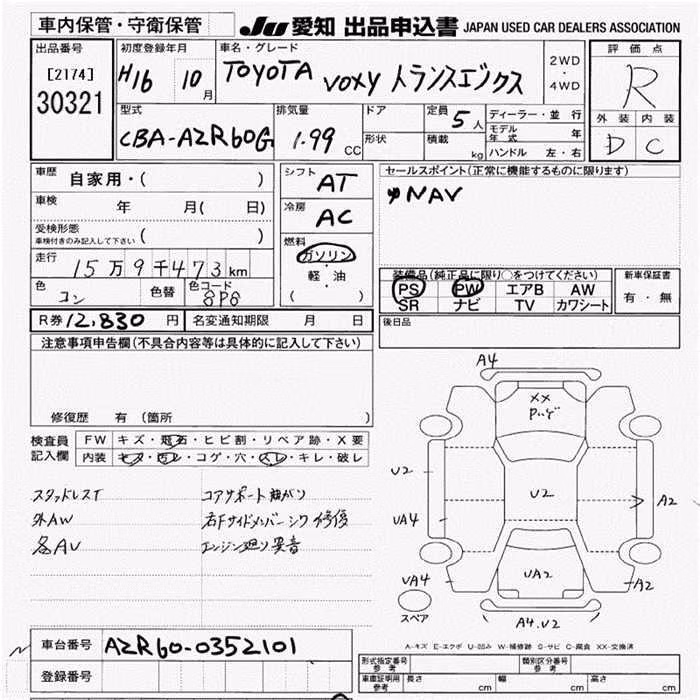 車内保管・守衛保管 JU 愛知 出品申込書 JAPAN USED CAR DEALERS ASSOCIATION
出品番号 [2174] 30321
初度登録年月 H16 10月
車名・グレード TOYOTA VOXY トランスエックス
2WD・4WD
評価点 R
外装 内装
D C
型式 CBA-AZR60G
排気量 1.99 CC
ドア 形状
定員 5人
積載 kg
ディーラー・並行
モデル年式 年
ハンドル 左・右
車歴 自家用・( )
車検 年 月( 日)
受検形態 車検付きのみ記入して下さい ( )
走行 15万9千473km
色 コン 色替 色コード 8P8
シフト AT
冷房 AC
燃料 ガソリン・軽・油 ( )
セールスポイント(正常に機能するものに限ります)
NAV
装備品(純正品に限り○をつけてください)
PS PW エアB AW
SR ナビ TV カワシート
新車保証書 有・無
R券 12,830 円 名変通知期限 月 日
後日品
注意事項申告欄(不具合内容等は具体的に記入して下さい)
修復歴 有 (箇所 )
検査員記入欄
FW キズ・飛石・ヒビ割・リペア跡・X要
内装 キズ・汚レ・コゲ・穴・スレ・キレ・破レ
スタッドレスT コアサポート曲がり
外AW 右Fサイドメンバーシワ修復
各AV エンジン廻り異音
A4
XX
Pいげ
U2
U2
A2
UA4
UA4
UA2
A2
スペア
A4.U2
A-キズ E-エクボ U-凹み W-補修跡 S-サビ C-腐食 XX-交換済
車台番号 AZR60-0352101
登録番号
型式指定番号 参考 類別区分番号 参考
車庫証明用 参考 長さ cm 幅 cm 高さ cm